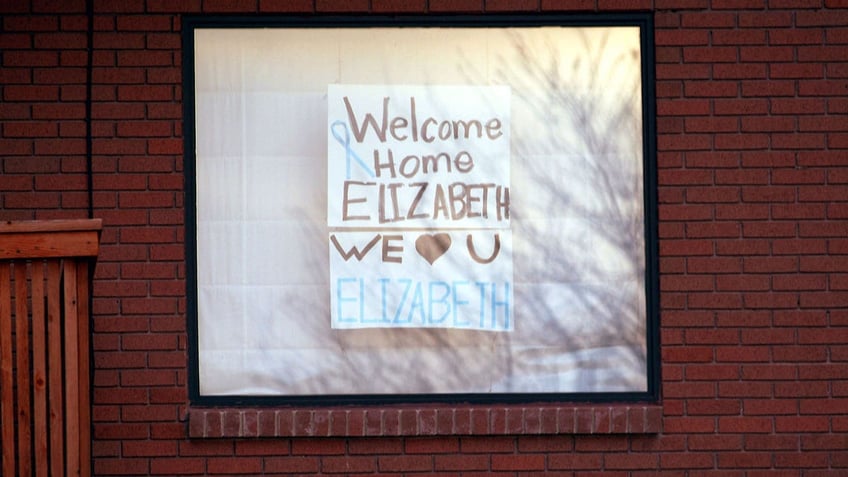 Welcome
Home
ELIZABETH
WE ♥ U
ELIZABETH